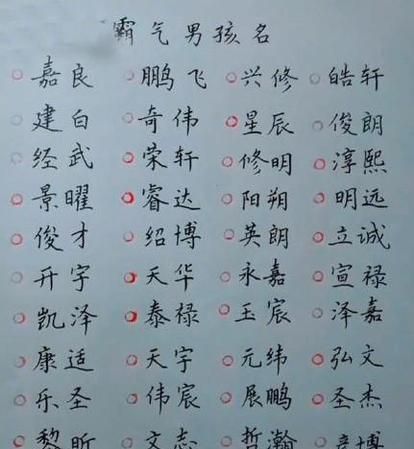 霸气男孩名
嘉良 鹏飞 兴修 皓轩
建白 奇伟 星辰 俊朗
经武 荣轩 修明 淳熙
景曜 睿达 阳朔 明远
俊才 绍博 英朗 立诚
开宇 天华 永嘉 宣禄
凯泽 泰禄 王宸 泽嘉
康适 天宇 元纬 弘文
乐圣 伟宸 展鹏 圣杰
黎昕 文志 哲瀚 彦博